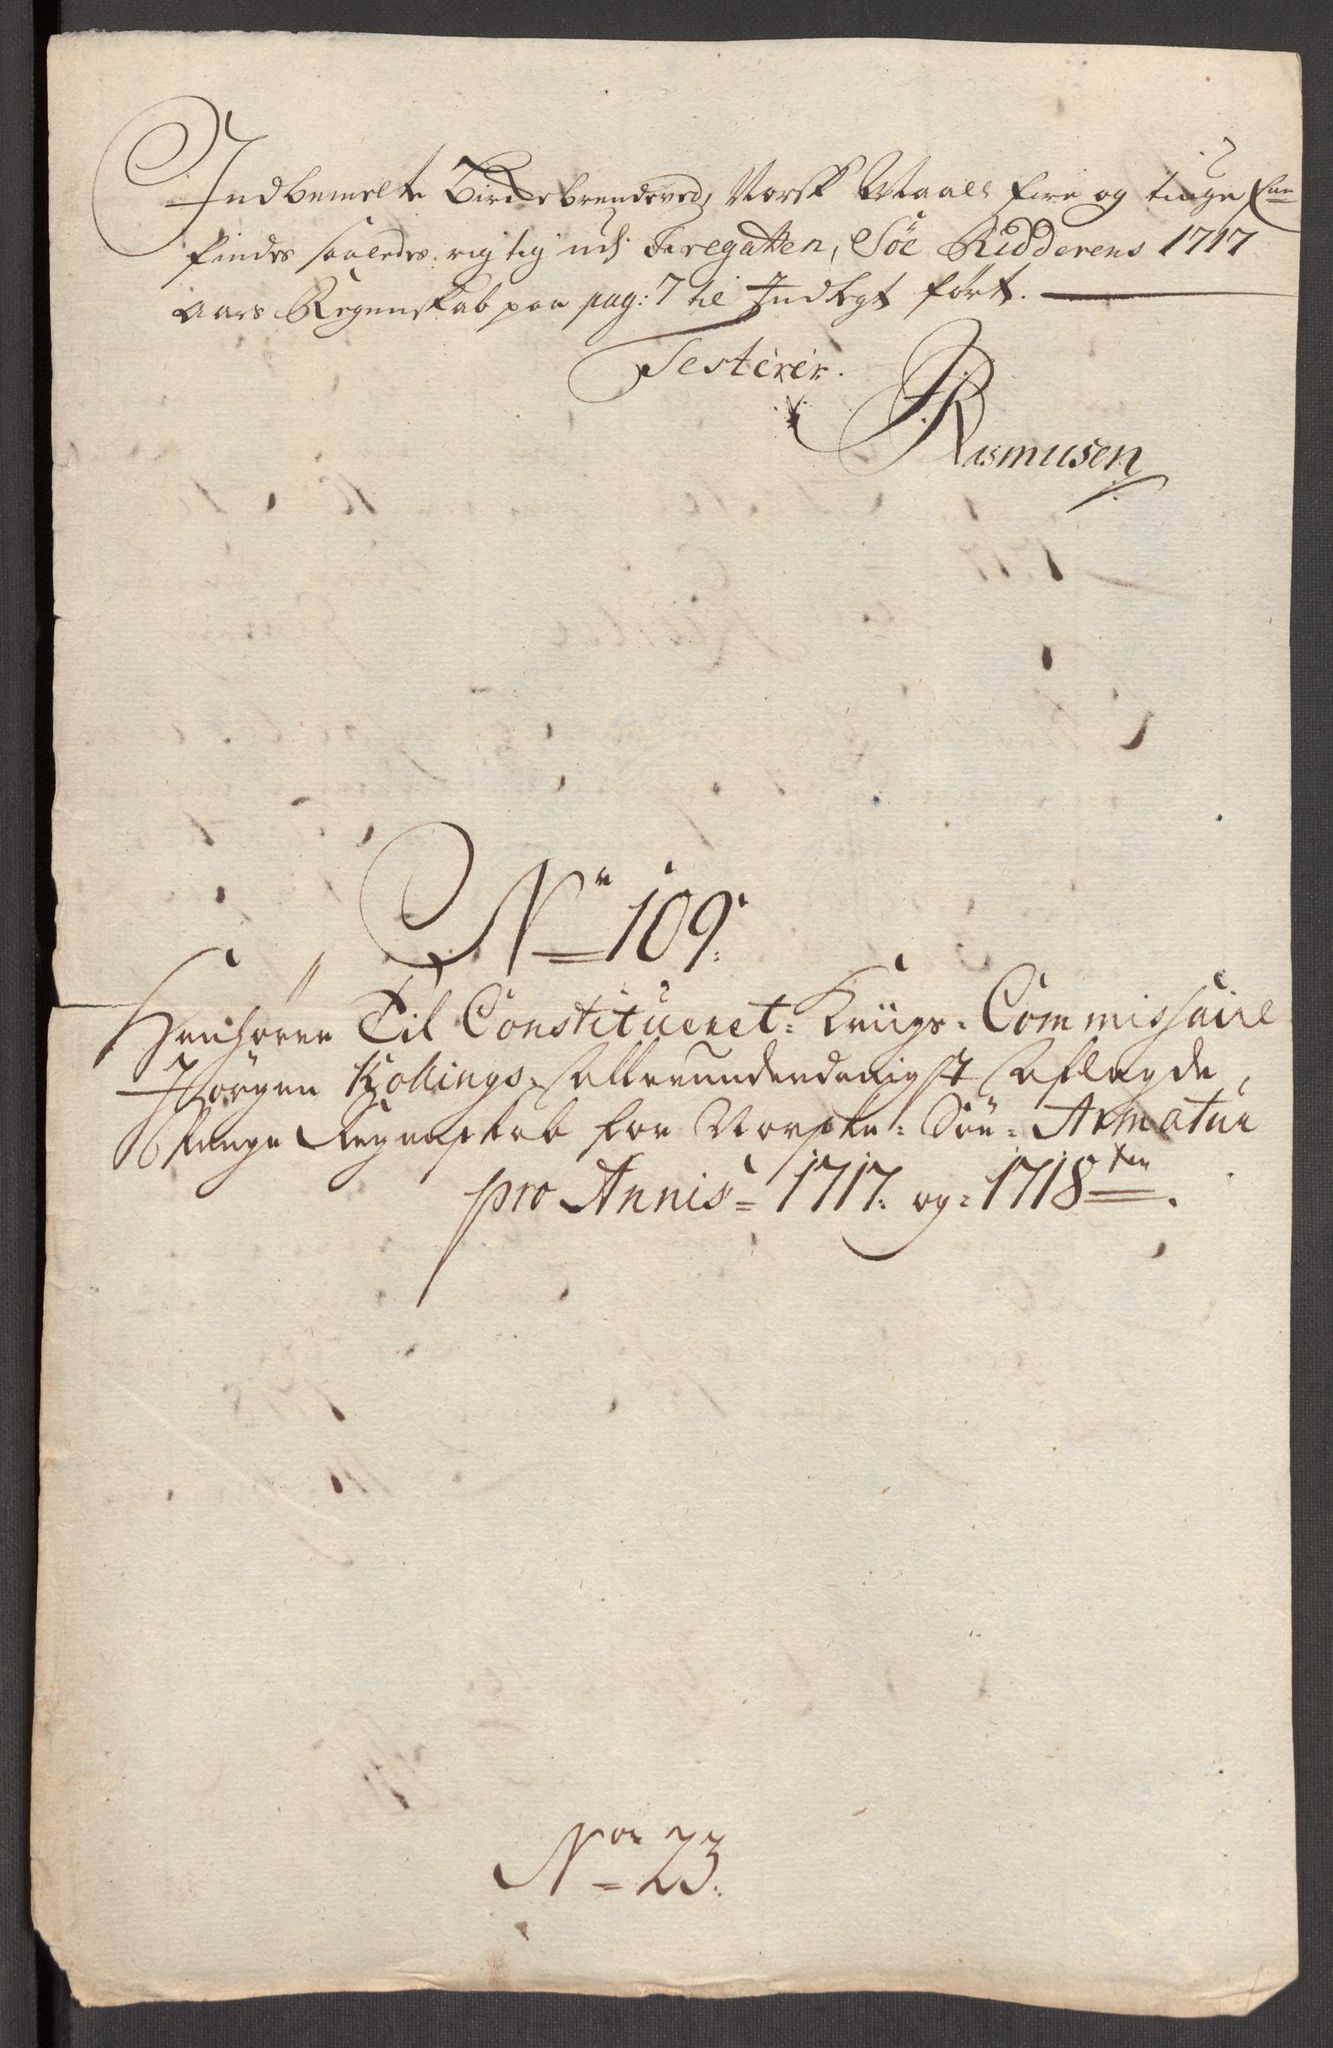 Indbemelte Birkebrendeved, Norsk Maall fire og tiuge Faune
findes saaledes rigtig udj Fregatten, Söe Ridderens 1717
aars Regenskab paa pag: 7 til Indtegt fört.
Testerer.
Rasmusen
No 109:
Henhörer Til Constitueret Kriigs-Commissaire
Jörgen Kollings allerunderdanigst aflagde
Penge Regenskab for Norske Söe-Armatur
pro Annis 1717. og 1718ten.
No 23.